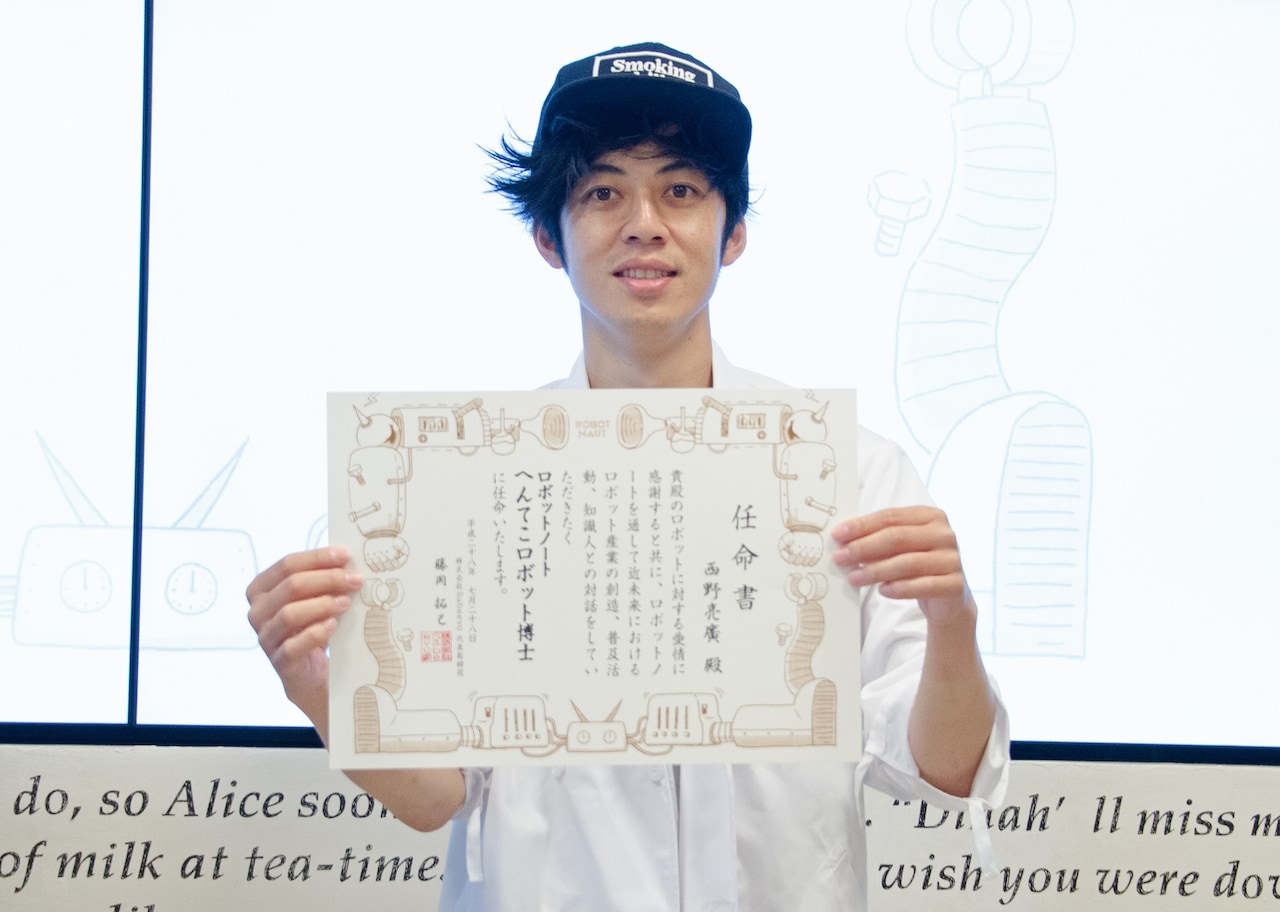 Smoking
ROBOT
NAUT
任命書
西野亮廣 殿
貴殿のロボットに対する愛情に
感謝すると共に、ロボットノ
ートを通して近未来における
ロボット産業の創造、普及活
動、知識人との対話をしてい
ただきたく
ロボットノート
へんてこロボット博士
に任命いたします。
平成二十八年 七月二十八日
藤岡 拓己
do, so Alice soon
of milk at tea-time.
"Dinah' ll miss m
wish you were dow